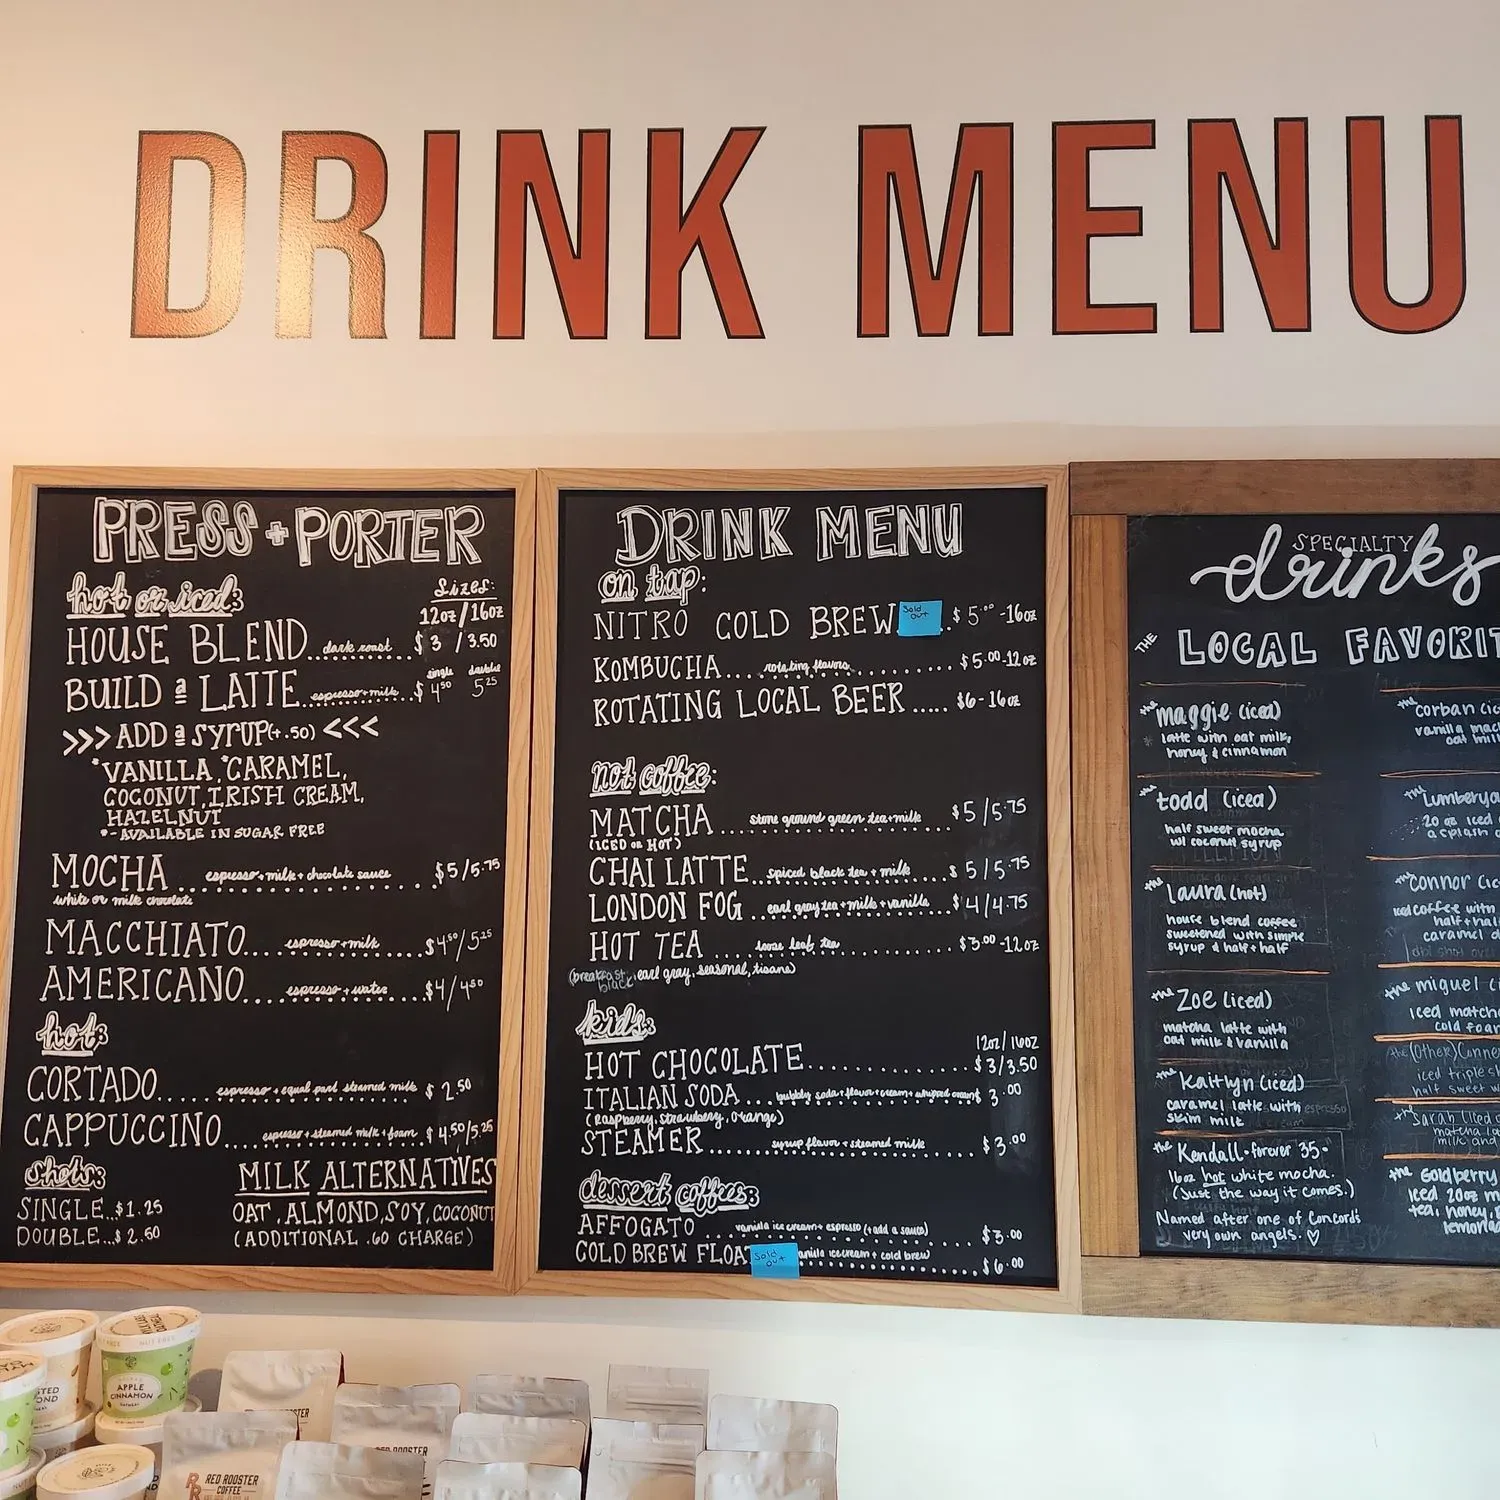 DRINK MENU
PRESS + PORTER
hot or iced:
Sizes:
12oz/16oz
HOUSE BLEND...dark roast...$3/3.50
single double
BUILD a LATTE...espresso+milk...$4.50 5.25
>>> ADD a SYRUP(+.50) <<<
*VANILLA, *CARAMEL,
COCONUT, IRISH CREAM,
HAZELNUT
*-AVAILABLE IN SUGAR FREE
MOCHA...espresso+milk+chocolate sauce...$5/5.75
white or milk chocolate
MACCHIATO...espresso+milk...$4.50/5.25
AMERICANO...espresso+water...$4/4.50
hot:
CORTADO...espresso + equal part steamed milk $2.50
CAPPUCCINO...espresso+steamed milk+foam.$4.50/5.25
shots:
SINGLE..$1.25
DOUBLE..$2.50
MILK ALTERNATIVES
OAT, ALMOND, SOY, COCONUT
(ADDITIONAL .60 CHARGE)
DRINK MENU
on tap:
NITRO COLD BREW Sold out ..$5.00-16oz
KOMBUCHA...rotating flavors...$5.00-12oz
ROTATING LOCAL BEER.....$6-16oz
not coffee:
MATCHA...stone ground green tea+milk...$5/5.75
(ICED or HOT)
CHAI LATTE...spiced black tea + milk...$5/5.75
LONDON FOG...earl gray tea+milk+vanilla...$4/4.75
HOT TEA...loose leaf tea...$3.00-12oz
(breakfast black, earl gray, seasonal, tisane)
kids:
12oz/16oz
HOT CHOCOLATE...$3/3.50
ITALIAN SODA...bubbly soda+flavor+cream+whipped cream $3.00
(raspberry, strawberry, orange)
STEAMER...syrup flavor+steamed milk...$3.00
dessert coffees:
AFFOGATO vanilla ice cream+espresso (+add a sauce) $3.00
COLD BREW FLOAT Sold out vanilla icecream + cold brew) $6.00
SPECIALTY
drinks
THE LOCAL FAVORIT
the maggie (iced)
latte with oat milk,
honey & cinnamon
the todd (iced)
half sweet mocha
w/ coconut syrup
the Laura (hot)
house blend coffee
sweetened with simple
syrup & half+half
the Zoe (iced)
matcha latte with
oat milk & vanilla
the Kaitlyn (iced)
caramel latte with
skim milk
the Kendall-forever 35-
16oz hot white mocha.
(Just the way it comes.)
Named after one of Concord's
very own angels. ♡
the corban (ic
vanilla mac
oat mil
the Lumberya
20 oz iced
a splash o
the Connor (ic
iced coffee with
half+hal
caramel d
the miguel (i
iced matcha
cold foam
the (Other) Conner
iced triple s
half sweet w
the Sarah (iced
matcha la
milk and
the Goldberry
iced 20oz m
tea, honey,
lemona
APPLE
CINNAMON
RED ROOSTER
COFFEE